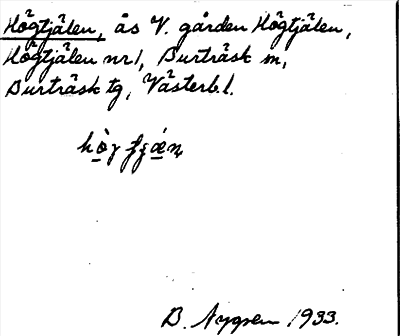 Högtjälen, ås V. gården Högtjälen,
Högtjälen nr 1, Burträsk sn,
Burträsk tg, Västerb. l.
B. Nygren 1933.